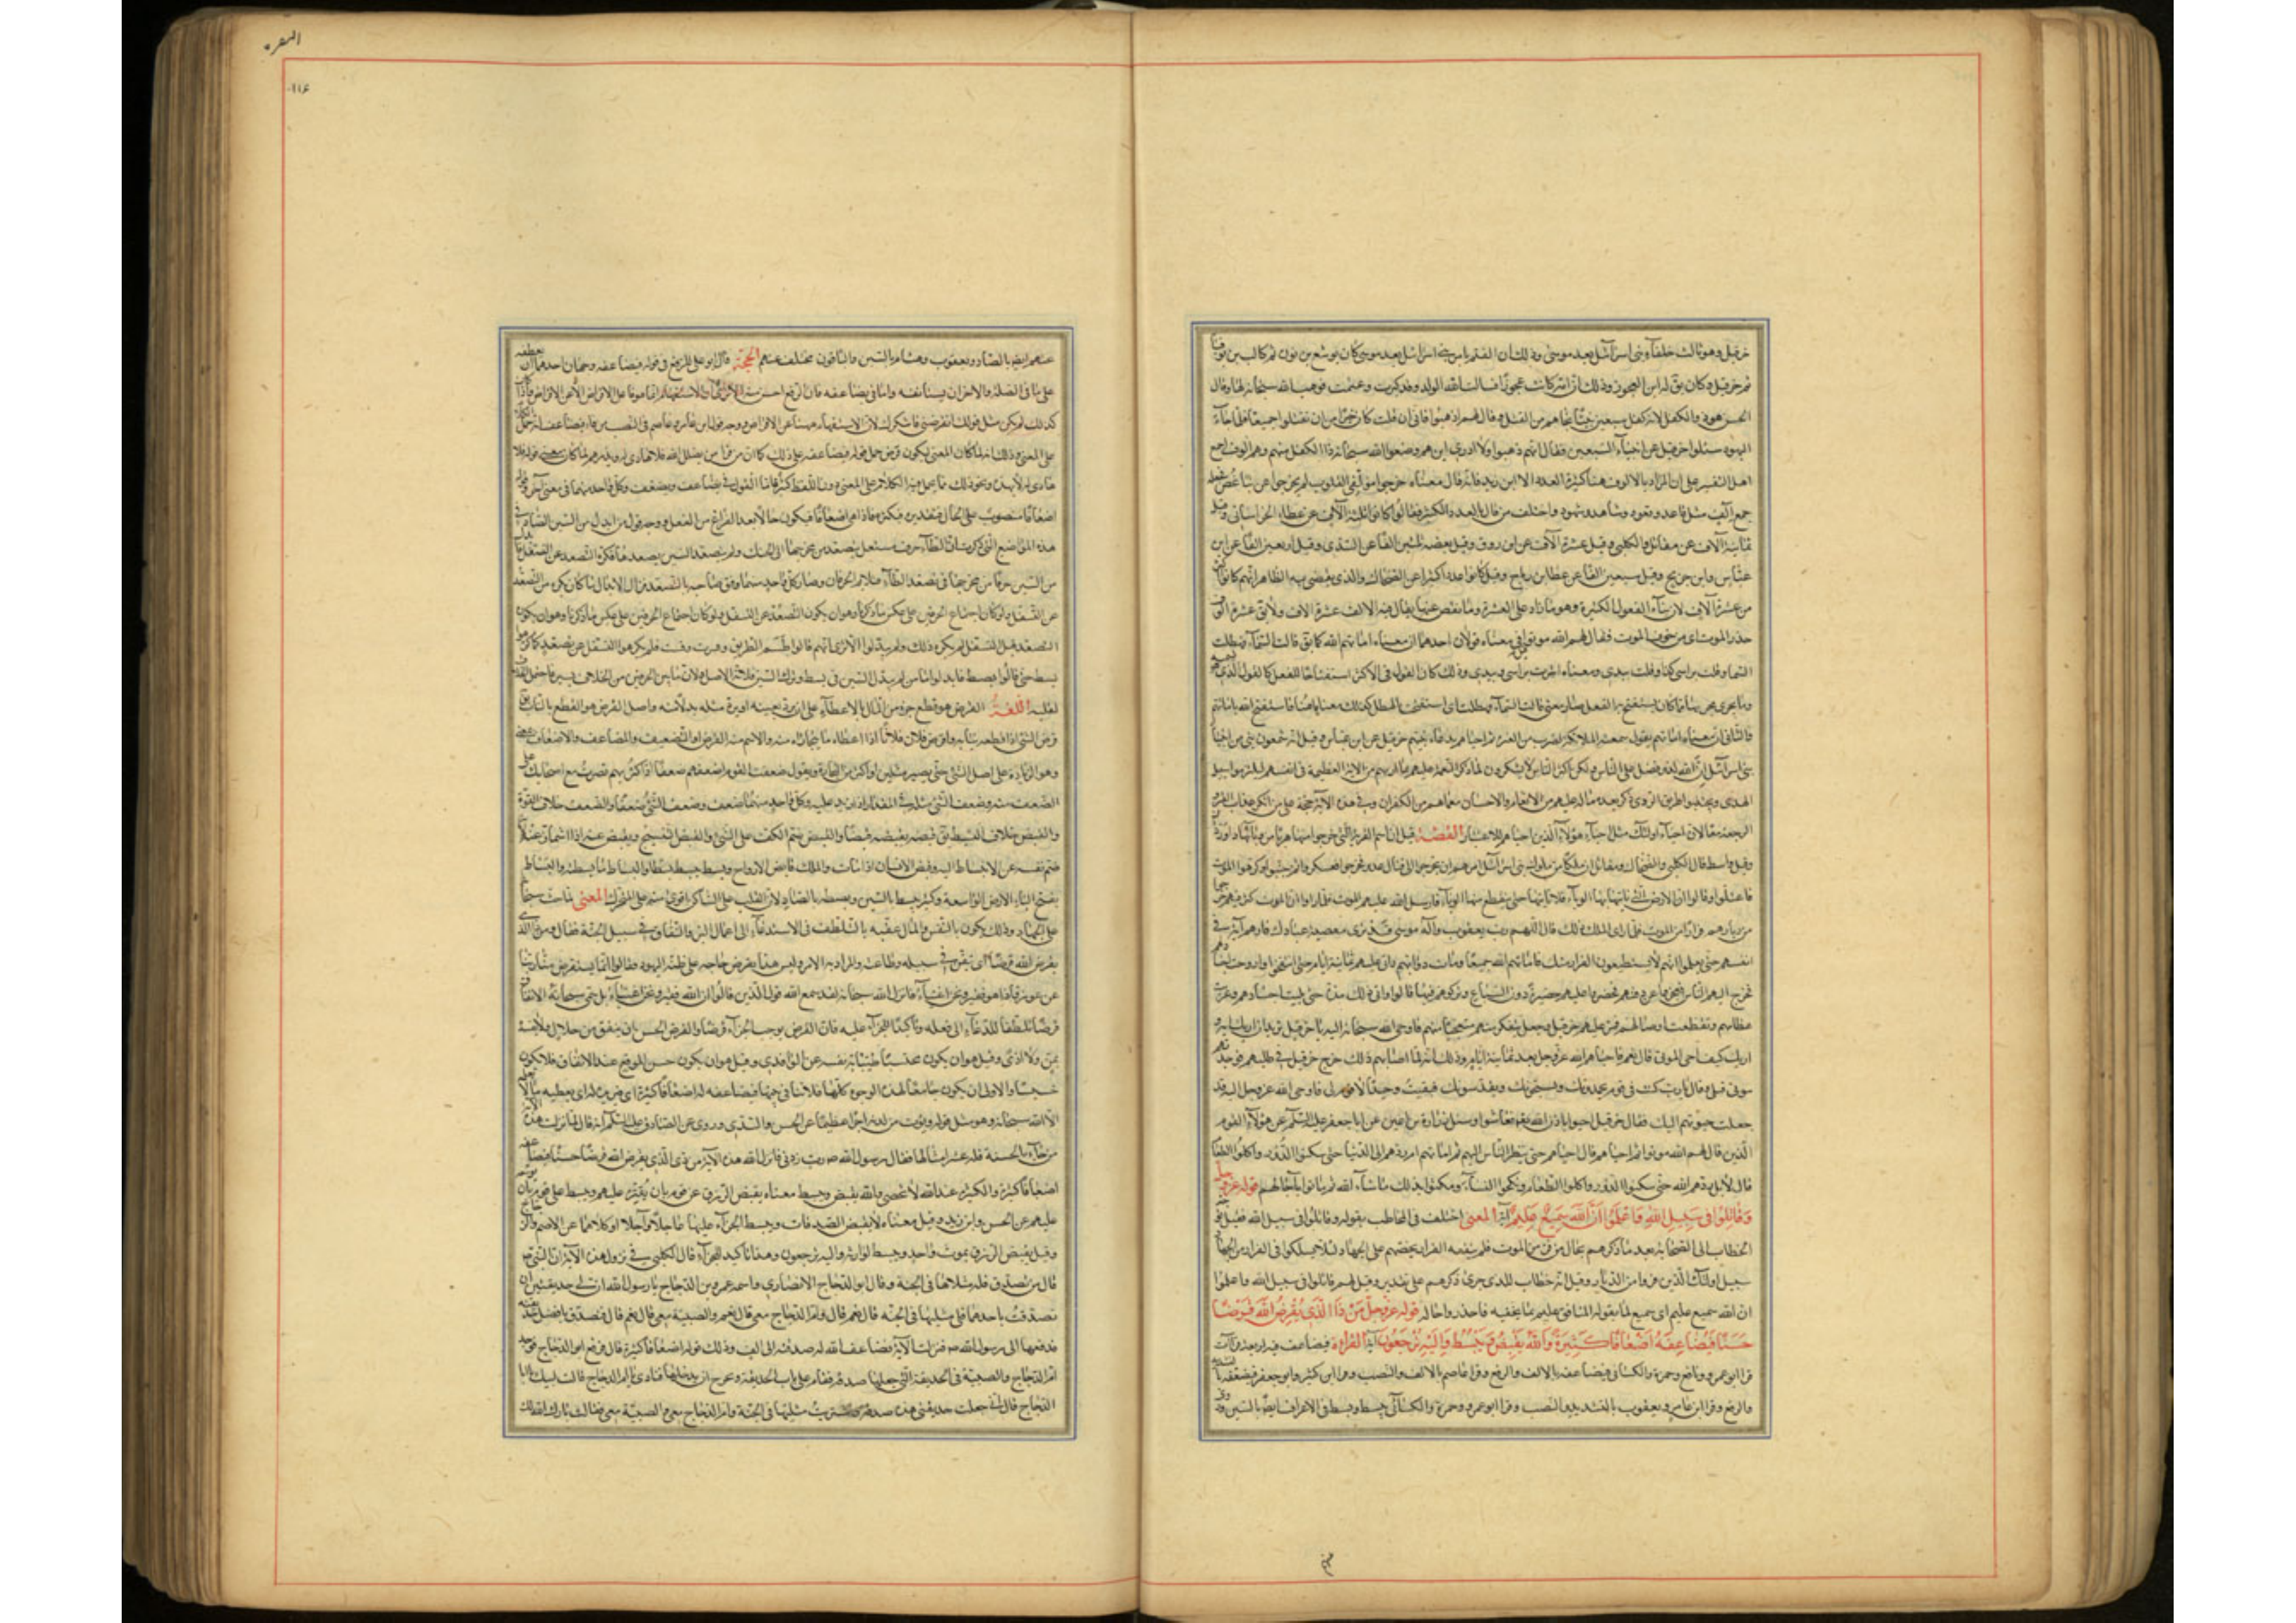 البقره
١١٤
حزقيل وهو ثالث خلفآء بنى اسرآئيل بعد موسى وذلك ان القيم بامر بنى اسرائيل بعد موسى كان يوشع بن نون ثم كالب بن يوقنا
ثم حزقيل وكان يق له ابن العجوز وذلك ان امه كانت عجوزا فسالت الله الولد وقد كبرت وعقمت فوهبه الله سبحانه لها وقال
الحسن هو ذو الكفل لانه كفل سبعين نبيا نجاهم من القتل وقال لهم اذهبوا فانى ان قتلت كان خيرا من ان تقتلوا جميعا فلما جآء
اليهود سئلوا حزقيل عن انبيآء السبعين فقال انهم ذهبوا ولا ادرى اين هم ومنع الله سبحانه ذا الكفل منهم وهم الوف اجمع
اهل التفسير على ان المراد بالالوف هنا كثرة العدد الا ابن زيد فانه قال معناه خرجوا مؤتلفى القلوب لم يخرجوا عن تباغض فجعله
جمع آلف مثل قاعد وقعود وشاهد وشهود واختلف من قال بالعدد الكثير فقالوا كانوا ثلثة آلاف عن عطاء الخراسانى وقيل
ثمانية آلاف عن مقاتل والكلبى وقيل عشرة آلاف عن ابن روق وقيل بضعة وثلثين الفا عن السدى وقيل اربعين الفا عن ابن
عباس وابن جريج وقيل سبعين الفا عن عطا بن رباح وقيل كانوا عددا كثيرا عن الضحاك والذى يقضى به الظاهر انهم كانوا اكثر
من عشرة آلاف لان بنآء الفعول للكثرة وهو ما زاد على العشرة وما نقص عنها يقال فيه آلاف عشرة الاف ولا يق عشرة الوف
حذر الموت اى من خوف الموت فقال لهم الله موتوا قيل فى معناه قولان احدهما ان معناه اماتهم الله كما يق قالت السمآء فهطلت
وقلت براسى كذا وقلت بيدى ومعناه اشرت براسى وبيدى وذلك لما كان القول فى الاكثر استفتاحا للفعل كالقول الذى هو تسمية
وما يجرى مجرى بما كان يستفتح به الفعل صار معنى قالت السمآء فهطلت اى استفتحت بالهطل كذلك معناه هيهنا فاستفتح الله باماتتهم
والثانى ان معناه اماتهم بقول سمعته الملائكة لضرب من العبرة ثم احياهم بدعآء نبيهم حزقيل عن ابن عباس وقيل انه شمعون نبى من انبيآء
بنى اسرآئيل ان الله لذو فضل على الناس ولكن اكثر الناس لا يشكرون لما ذكر النعمة عليهم بما اراهم من الاية العظيمة فى انفسهم ليلتزموا سبيل
الهدى ويجتنبوا طريق الردى ذكر بعده ما له عليهم من الانعام والاحسان مع ما هم من الكفران وفى هذه الآية حجة على من انكر عذاب القبر
والرجعة معا لان احيآء اولئك مثل احيآء هؤلآء الذين احياهم للاعتبار القصة قيل ان اسم القرية التى خرجوا منها هربا من وبائها داوردان
وقيل واسط قال الكلبى والضحاك ومقاتل ان ملكا من ملوك بنى اسرآئيل امرهم ان يخرجوا الى قتال عدوهم فخرجوا فعسكروا ثم جبنوا وكرهوا الموت
فاعتلوا وقالوا ان الارض التى ناتيها بها الوبآء فلا ناتيها حتى ينقطع منها الوبآء فارسل الله عليهم الموت فلما راوا ان الموت كثر فيهم خرجوا
من ديارهم فرارا من الموت فلما راى الملك ذلك قال اللهم رب يعقوب واله موسى قد ترى معصية عبادك فارهم آية فى
انفسهم حتى يعلموا انهم لا يستطيعون الفرار منك فاماتهم الله جميعا وماتت دوابهم واتى عليهم ثمانية ايام حتى انتفخوا واروحت اجسادهم
فخرج اليهم الناس فعجزوا عن دفنهم فحضروا عليهم حضيرة دون السباع وتركوهم فيها قالوا واتى ذلك مدة حتى بليت اجسادهم وعريت
عظامهم وتقطعت اوصالهم فمر عليهم حزقيل فجعل يتفكر فيهم متعجبا منهم فاوحى الله سبحانه اليه يا حزقيل تريد ان اريك آية
اريك كيف احى الموتى قال نعم فاحياهم الله عز وجل بعد ثمانية ايام وذلك انه لما اصابهم ذلك خرج حزقيل فى طلبهم فوجدهم
موتى فبكى وقال يا رب كنت فى قوم يحمدونك ويسبحونك ويقدسونك فبقيت وحيدا لا قوم لى فاوحى الله عز وجل اليه قد
جعلت حيوتهم اليك فقال حزقيل احيوا باذن الله فعاشوا وسئل زرارة بن اعين عن ابا جعفر عليه السلام عن هؤلآء القوم
الذين قال لهم الله موتوا ثم احياهم قال احياهم حتى نظر الناس اليهم ثم اماتهم ام ردهم الى الدنيا حتى سكنوا الدور واكلوا الطعام
قال لا بل ردهم الله حتى سكنوا الدور واكلوا الطعام ونكحوا النسآء ومكثوا بذلك ما شآء الله ثم ماتوا بآجالهم قوله عز وجل
وقاتلوا فى سبيل الله واعلموا ان الله سميع عليم آية المعنى اختلف فى المخاطب بقوله وقاتلوا فى سبيل الله فقيل توجه
الخطاب الى الصحابة بعد ما ذكرهم بحال من فر من الموت فلم ينفعه الفرار يحضهم على الجهاد لئلا يسلكوا فى الفرار من الجهاد
سبيل اولئك الذين فروا من الديار وقيل انه خطاب للذى جرى ذكرهم على تقدير وقيل لهم قاتلوا فى سبيل الله واعلموا
ان الله سميع عليم اى سميع لما يقوله المنافق عليم بما يخفيه فاحذروا حاله قوله عز وجل من ذا الذى يقرض الله قرضا
حسنا فيضاعفه له اضعافا كثيرة والله يقبض ويبسط واليه ترجعون آية القراءة فيضاعفه فيه اربع قراآت
قرا ابو عمرو ونافع وحمزة والكسائى فيضاعفه بالالف والرفع وقرا عاصم بالالف والنصب وقرا ابن كثير وابو جعفر فيضعفه بالتشديد
والرفع وقرا ابن عامر ويعقوب بالتشديد والنصب وقرا ابو عمرو وحمزة والكسائى يبسط وبسطة فى الاعراف ايضا بالسين وروى
عنهم ايضا بالصاد ويعقوب وهشام بالسين والباقون مختلف عنهم الحجة قال ابو على للرفع فى قوله فيضاعفه وجهان احدهما ان يعطفه
على ما فى الصلة والاخر ان يستانفه واما فيضاعفه فان الرفع احسن منه الا ترى ان الاستفهام انما هو عن فاعل الاقراض لا عن الاقراض فاذا كان
كذلك لم يكن مثل قولك اتقرضنى فاشكرك لان الاستفهام هيهنا عن الاقراض ووجه قول ابن عامر وعاصم فى النصب من فاء فيضاعفه انه حمل الكلام
على المعنى وذلك انه لما كان المعنى ايكون قرض حمل قوله فيضاعفه على ذلك كما ان من قرا من يضلل الله فلا هادى له ويذرهم لما كان معنى قوله فلا
هادى له لا يهده ونحو ذلك مما يحمل فيه الكلام على المعنى دون اللفظ كثير فاما القول فى يضاعف ويضعف وكل واحد منهما فى معنى الآخر وقوله
اضعافا منصوب على الحال وتقديره فيكثره فاذا هى اضعافا فيكون حالا بعد الفراغ من الفعل ووجه قول من ابدل من السين الصاد فى
هذه المواضع التى ذكرت ان الطآء حرف مستعل يتصعد من مخرجها الى الحنك ولم يتصعد السين تصعدها فكره التصعد عن التسفل فابدل
من السين حرفا من مخرجها فى تصعد الطآء فتلاءم الحرفان وصار كل واحد منهما وفق صاحبه بالتصعد فزال الابدال ما كان يكره من التصعد
عن التسفل ولو كان اجتماع الحرفين على عكس ما ذكرنا وهو ان يكون التصعد عن التسفل
التصعد قبل التسفل لم يكره ذلك ولم يبدلوا الا ترى انهم قالوا طسم الطريق وقست وقست فلم يكرهوا التسفل عن تصعد كما كرهوا
بسط حتى قالوا بصط فابدلوا فاما من لم يبدل السين فى بسط وترك السين فلانه الاصل ولان ما بين الحرفين من الخلاف يسير فاحتمل الخلاف
لقلته اللغة القرض هو قطع جزء من المال بالاعطآء على ان يرد بعينه او يرد مثله بدلا منه واصل القرض هو القطع بالناب يق
قرض الشئ اذا قطعه بنابه واقرض فلان فلانا اذا اعطاه ما يتجازاه منه والاسم منه القرض والتضعيف والمضاعفة والاضعاف بمعنى
وهو الزيادة على اصل الشئ حتى يصير مثلين او اكثر من الثلثة وتقول ضعفت القوم اضعفهم ضعفا اذا كثرتهم فصرت مع اصحابك على
الضعف منهم وضعف الشئ مثله فى المقدار اذا زيد عليه وكل واحد منهما ضعف وضعف الشئ ضعفا والضعف خلاف القوة
والقبض خلاف البسط يق قبضه يقبضه قبضا والقبض ضم الكف على الشئ والقبض التشنج وتقبض عنه اذا اشمأز عنه لانه
ضم نفسه عن الانبساط اليه وقبض الانسان اذا مات والملك قابض الارواح وبسط يبسط بسطا والبساط ما بسطته والبساط
بفتح الباء الارض الواسعة وكتب يبسط بالسين وبصطة بالصاد لان القلب على الساكن اقوى منه على المتحرك المعنى لما حث سبحانه
على الجهاد وذلك يكون بالنفس والمال عقبه بالتلطف فى الاستدعآء الى اعمال البر والانفاق فى سبيل الجنة فقال من ذا الذى
يقرض الله قرضا اى ينفق فى سبيله وطاعته والمراد به الامر وليس هذا بقرض حاجة على ظن اليهود وقالوا انما يستقرض منا ربنا
عن عوز فاذا هو فقير ونحن اغنيآء فانزل الله سبحانه لقد سمع الله قول الذين قالوا ان الله فقير ونحن اغنيآء بل سمى سبحانه الانفاق
قرضا تلطفا للدعآء الى فعله وتاكيدا للجزآء عليه فان القرض يوجب الجزآء قرضا والقرض الحسن ان ينفق من حلال ولا يفسده
بمن ولا اذى وقيل هو ان يكون محتسبا طيبا به نفسه عن الواقدى وقيل هو ان يكون حسن الموقع عند الانفاق فلا يكون
خسيسا والاولى ان يكون جامعا لهذه الوجوه كلها فلا تنافى بينها فيضاعفه له اضعافا كثيرة اى يزيده له اى يعطيه ما لا يعلمه
الا الله سبحانه وهو مثل قوله ويؤت من لدنه اجرا عظيما عن الحسن والسدى وروى عن الصادق عليه السلم انه قال لما نزلت هذه الآية
من جآء بالحسنة فله عشر امثالها فقال رسول الله ص رب زدنى فانزل الله هذه الآية من ذى الذى يقرض الله قرضا حسنا فيضاعفه
اضعافا كثيرة والكثير عند الله لا يحصى والله يقبض ويبسط معناه يقبض الرزق عن قوم بان يقتره عليهم ويبسط على قوم بان يوسعه
عليهم عن الحسن وابن زيد وقيل معناه لا يقبض الصدقات ويبسط الجزآء عليها عاجلا وآجلا او كلاهما عن الاصم والزجاج
وقيل يقبض الرزق بموت واحد ويبسط لوارثه واليه ترجعون وهذا تاكيد للجزآء قال الكلبى فى نزول هذه الآية ان النبى ص
قال من تصدق فله مثلاها فى الجنة وقال ابو الدحداح الانصارى واسمه عمرو بن الدحداح يا رسول الله ان لى حديقتين ان
تصدقت باحدهما فلى مثليها فى الجنة قال نعم قال وام الدحداح معى قال نعم والصبية معى قال نعم قال فتصدق بافضل حديقتيه
فدفعها الى رسول الله ص فنزلت الآية فضاعف الله له صدقته الى الف وذلك قوله اضعافا كثيرة قال فرجع ابو الدحداح فوجد
ام الدحداح والصبية فى الحديقة التى جعلها صدقة فقام على باب الحديقة وتحرج ان يدخلها فنادى يا ام الدحداح قالت لبيك يا ابا
الدحداح قال انى جعلت حديقتى هذه صدقة واشتريت مثليها فى الجنة وام الدحداح معى والصبية معى فقالت بارك الله لك